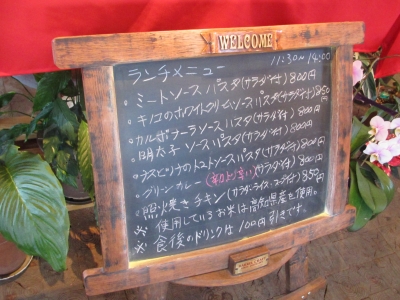 WELCOME
11:30~14:00
ランチメニュー
・ミートソースパスタ(サラダ付) 800円
・キノコのホワイトクリームソースパスタ(サラダ付) 850
・カルボナーラソースパスタ(サラダ付) 800円
・明太子ソースパスタ(サラダ付) 800円
・ナスとツナのトマトソースパスタ(サラダ付) 800円
・グリーンカレー (サラダ付) 800円
・照り焼きチキン(サラダ・ライス・スープ付) 850円
※使用しているお米は高知県産を使用。
※食後のドリンクは100円引きです。